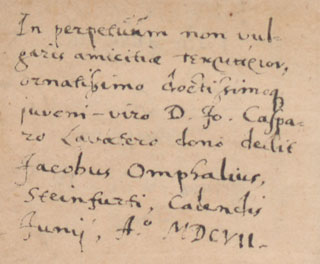 In perpetuum non vul-
garis amicitiæ
ornatissimo doctissimoq
juveni-viro D. Jo. Caspa-
ro Lavatero dono dedit
Jacobus Omphalius,
Steinfurti, Calendis
Junij, A.º MDCVII.